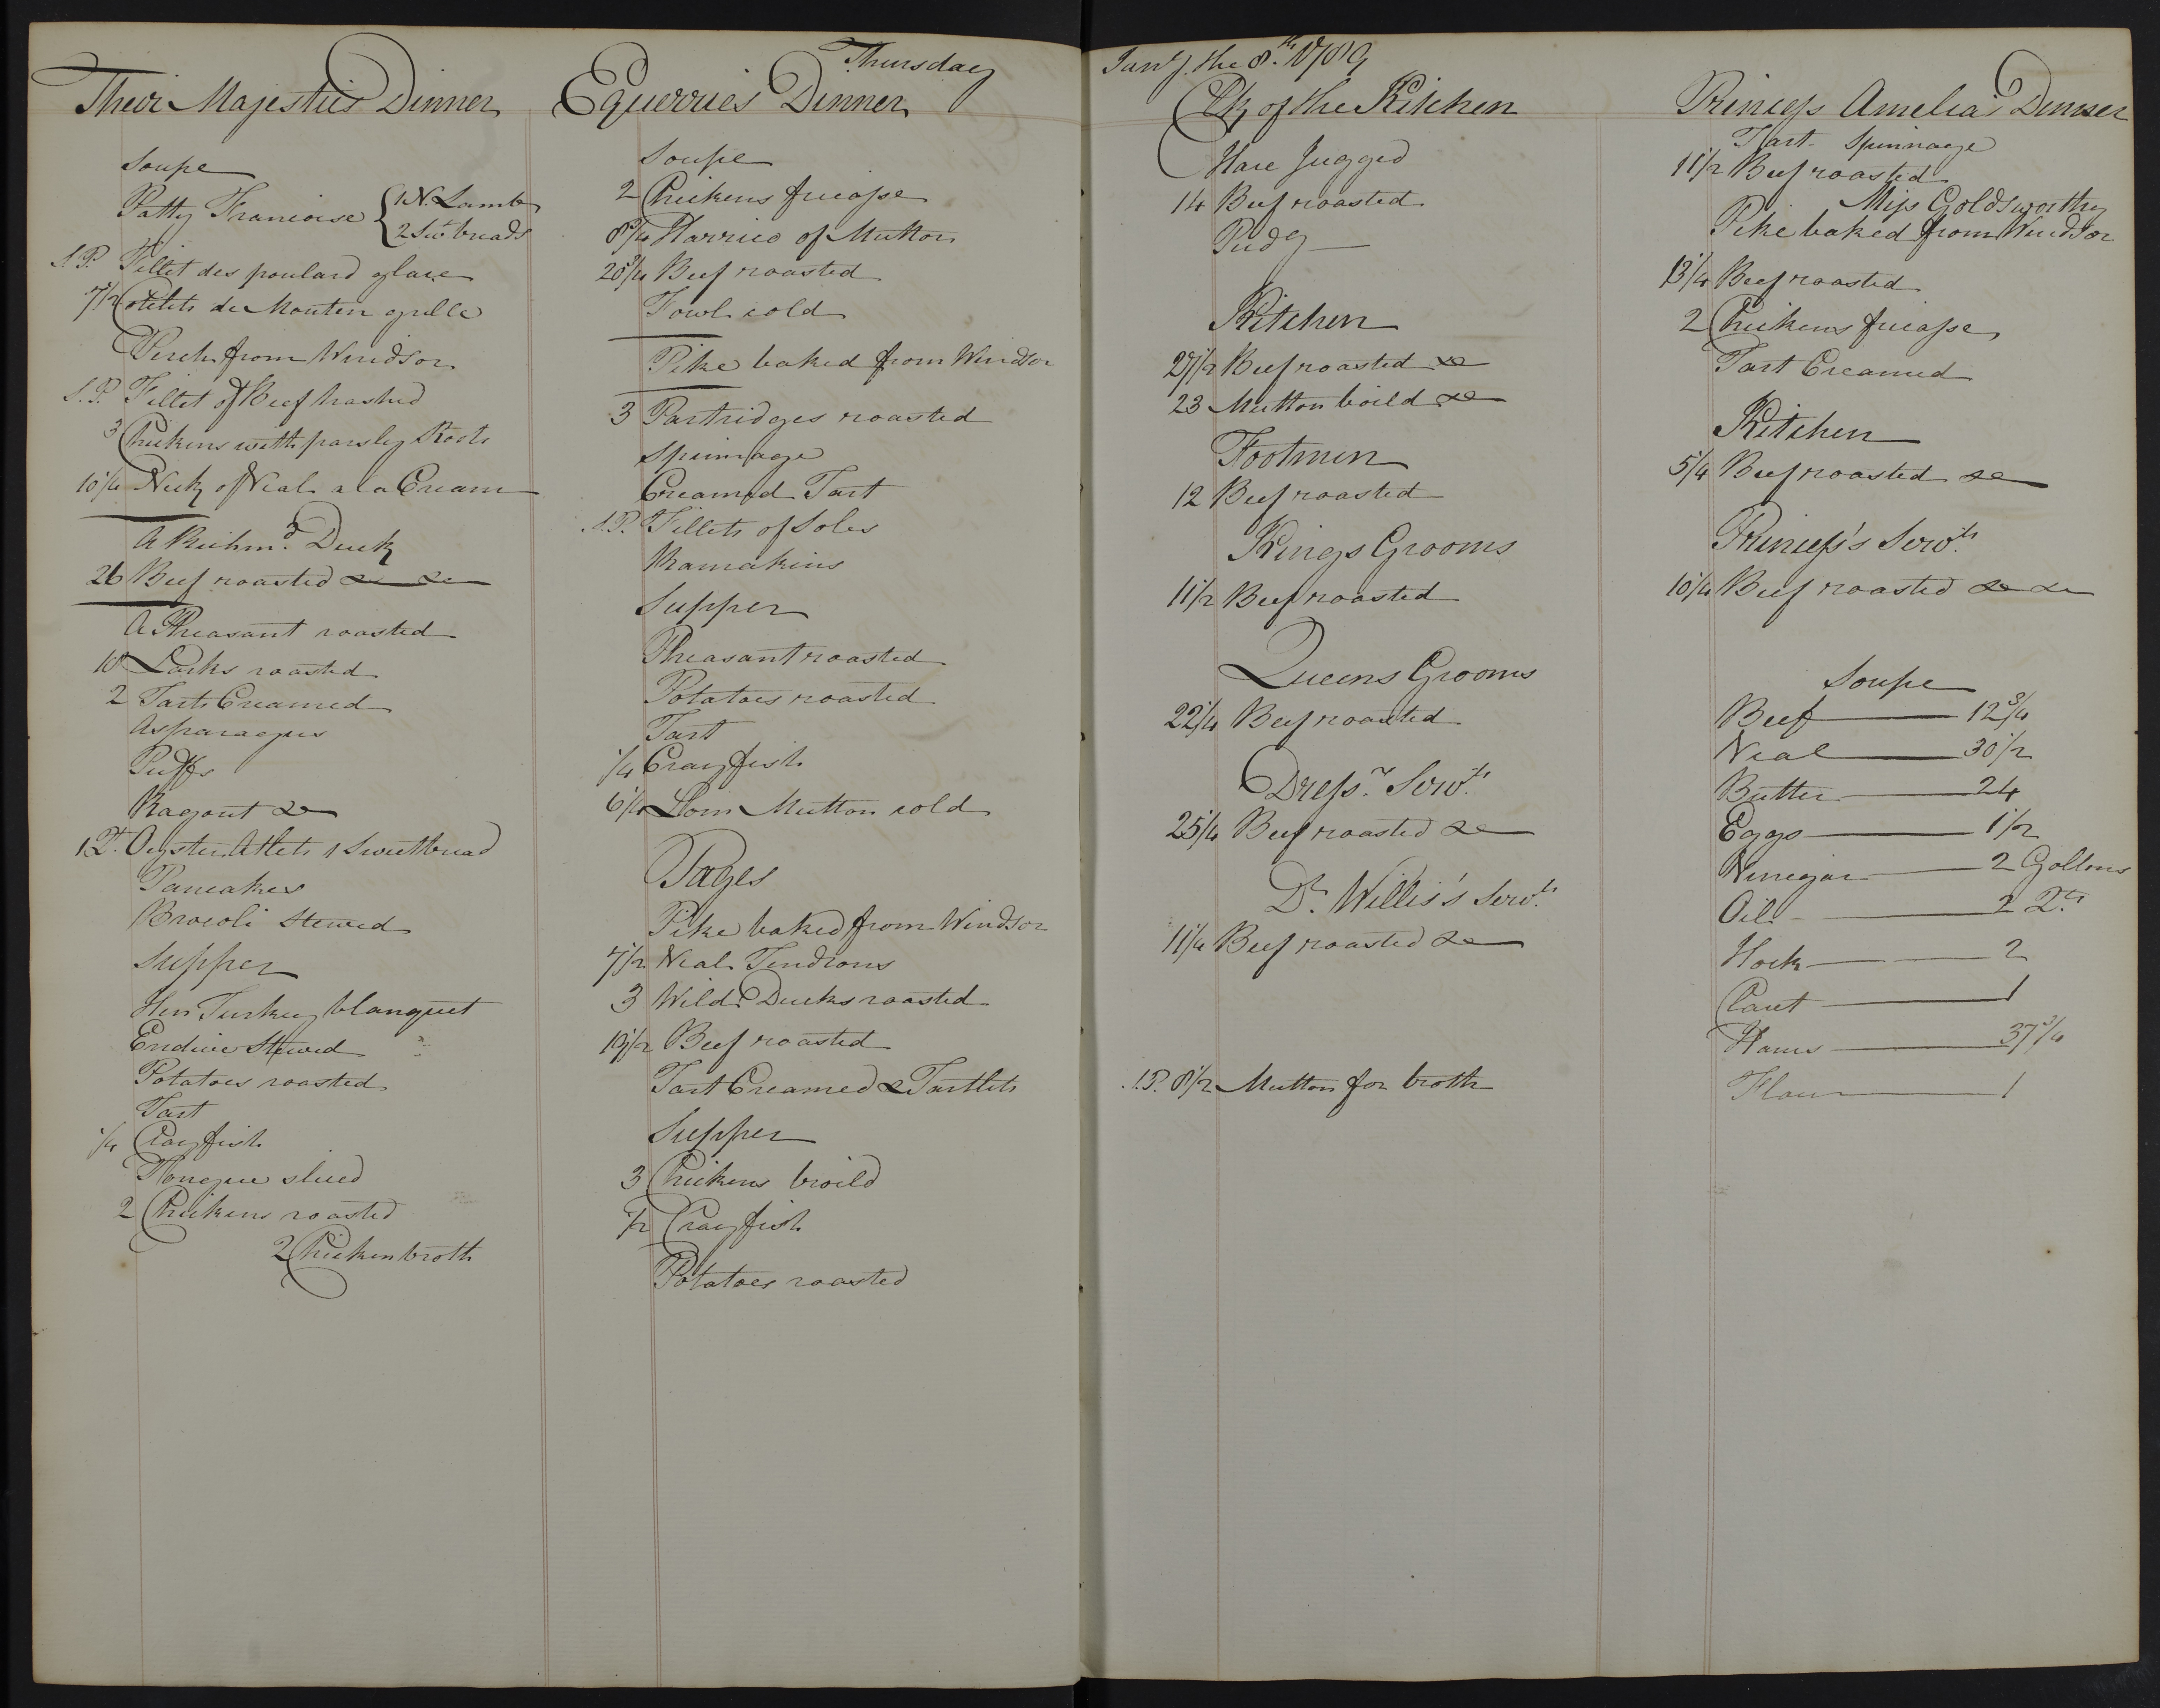 Thursday
Jan.y the 8.th 1789
Their Majesties Dinner
Soupe
Patty Francoise { 1 N. Lamb
2 Sw.t breads
S.P. Fillet des poulard glace
7 1/2 Cotlets de Mouton grille
Perch from Windsor
S.P. Fillet of Beef hashed
3 Chickens with parsley Roots
10 1/4 Neck of Veal a la Cream
A Richm.d Duck
26 Beef roasted &c &c
A Pheasant roasted
18 Larks roasted
2 Tarts Creamed
Asparagus
Puffs
Ragout &c
1 P.t Oyster Atlets 1 Sweetbread
Pancakes
Brocoli Stewed
Supper
Hen Turkey blanquet
Endive Stewed
Potatoes roasted
Tart
1/4 Crayfish
Tongue sliced
2 Chickens roasted
2 Chicken broth
Equerries Dinner
Soupe
2 Chickens fricasse
8 3/4 Harrico of Mutton
20 3/4 Beef roasted
Fowl cold
Pike baked from Windsor
3 Partridges roasted
Spinnage
Creamed Tart
S.P. Fillets of Soles
Ramakins
Supper
Pheasant roasted
Potatoes roasted
Tart
1/4 Crayfish
6 1/4 Loin Mutton cold
Pages
Pike baked from Windsor
7 1/2 Veal Tendrons
3 Wild Ducks roasted
19 1/2 Beef roasted
Tart Creamed & Tartlets
Supper
3 Chickens broild
1/2 Crayfish
Potatoes roasted
Clk of the Kitchen
Hare Jugged
14 Beef roasted
Pudg
Kitchen
27 1/2 Beef roasted &c
23 Mutton boild &c
Footmen
12 Beef roasted
Kings Grooms
11 1/2 Beef roasted
Queens Grooms
22 1/4 Beef roasted
Dress.r Serv.ts
25 1/4 Beef roasted &c
D.r Willis's Serv.ts
11 1/4 Beef roasted &c
S.P. 8 1/2 Mutton for broth
Princess Amelia's Dinner
Tart Spinnage
11 1/2 Beef roasted
Miss Goldsworthy
Pike baked from Windsor
13 1/4 Beef roasted
2 Chickens fricasse
Tart Creamed
Kitchen
5 1/4 Beef roasted &c
Princess's Serv.ts
10 1/4 Beef roasted &c &c
Soupe
Beef 12 3/4
Veal 30 1/2
Butter 24
Eggs 1 1/2
Vinegar 2 Gallons
Oil 2 Q.ts
Hock 2
Claret 1
Hams 37 3/4
Flour 1